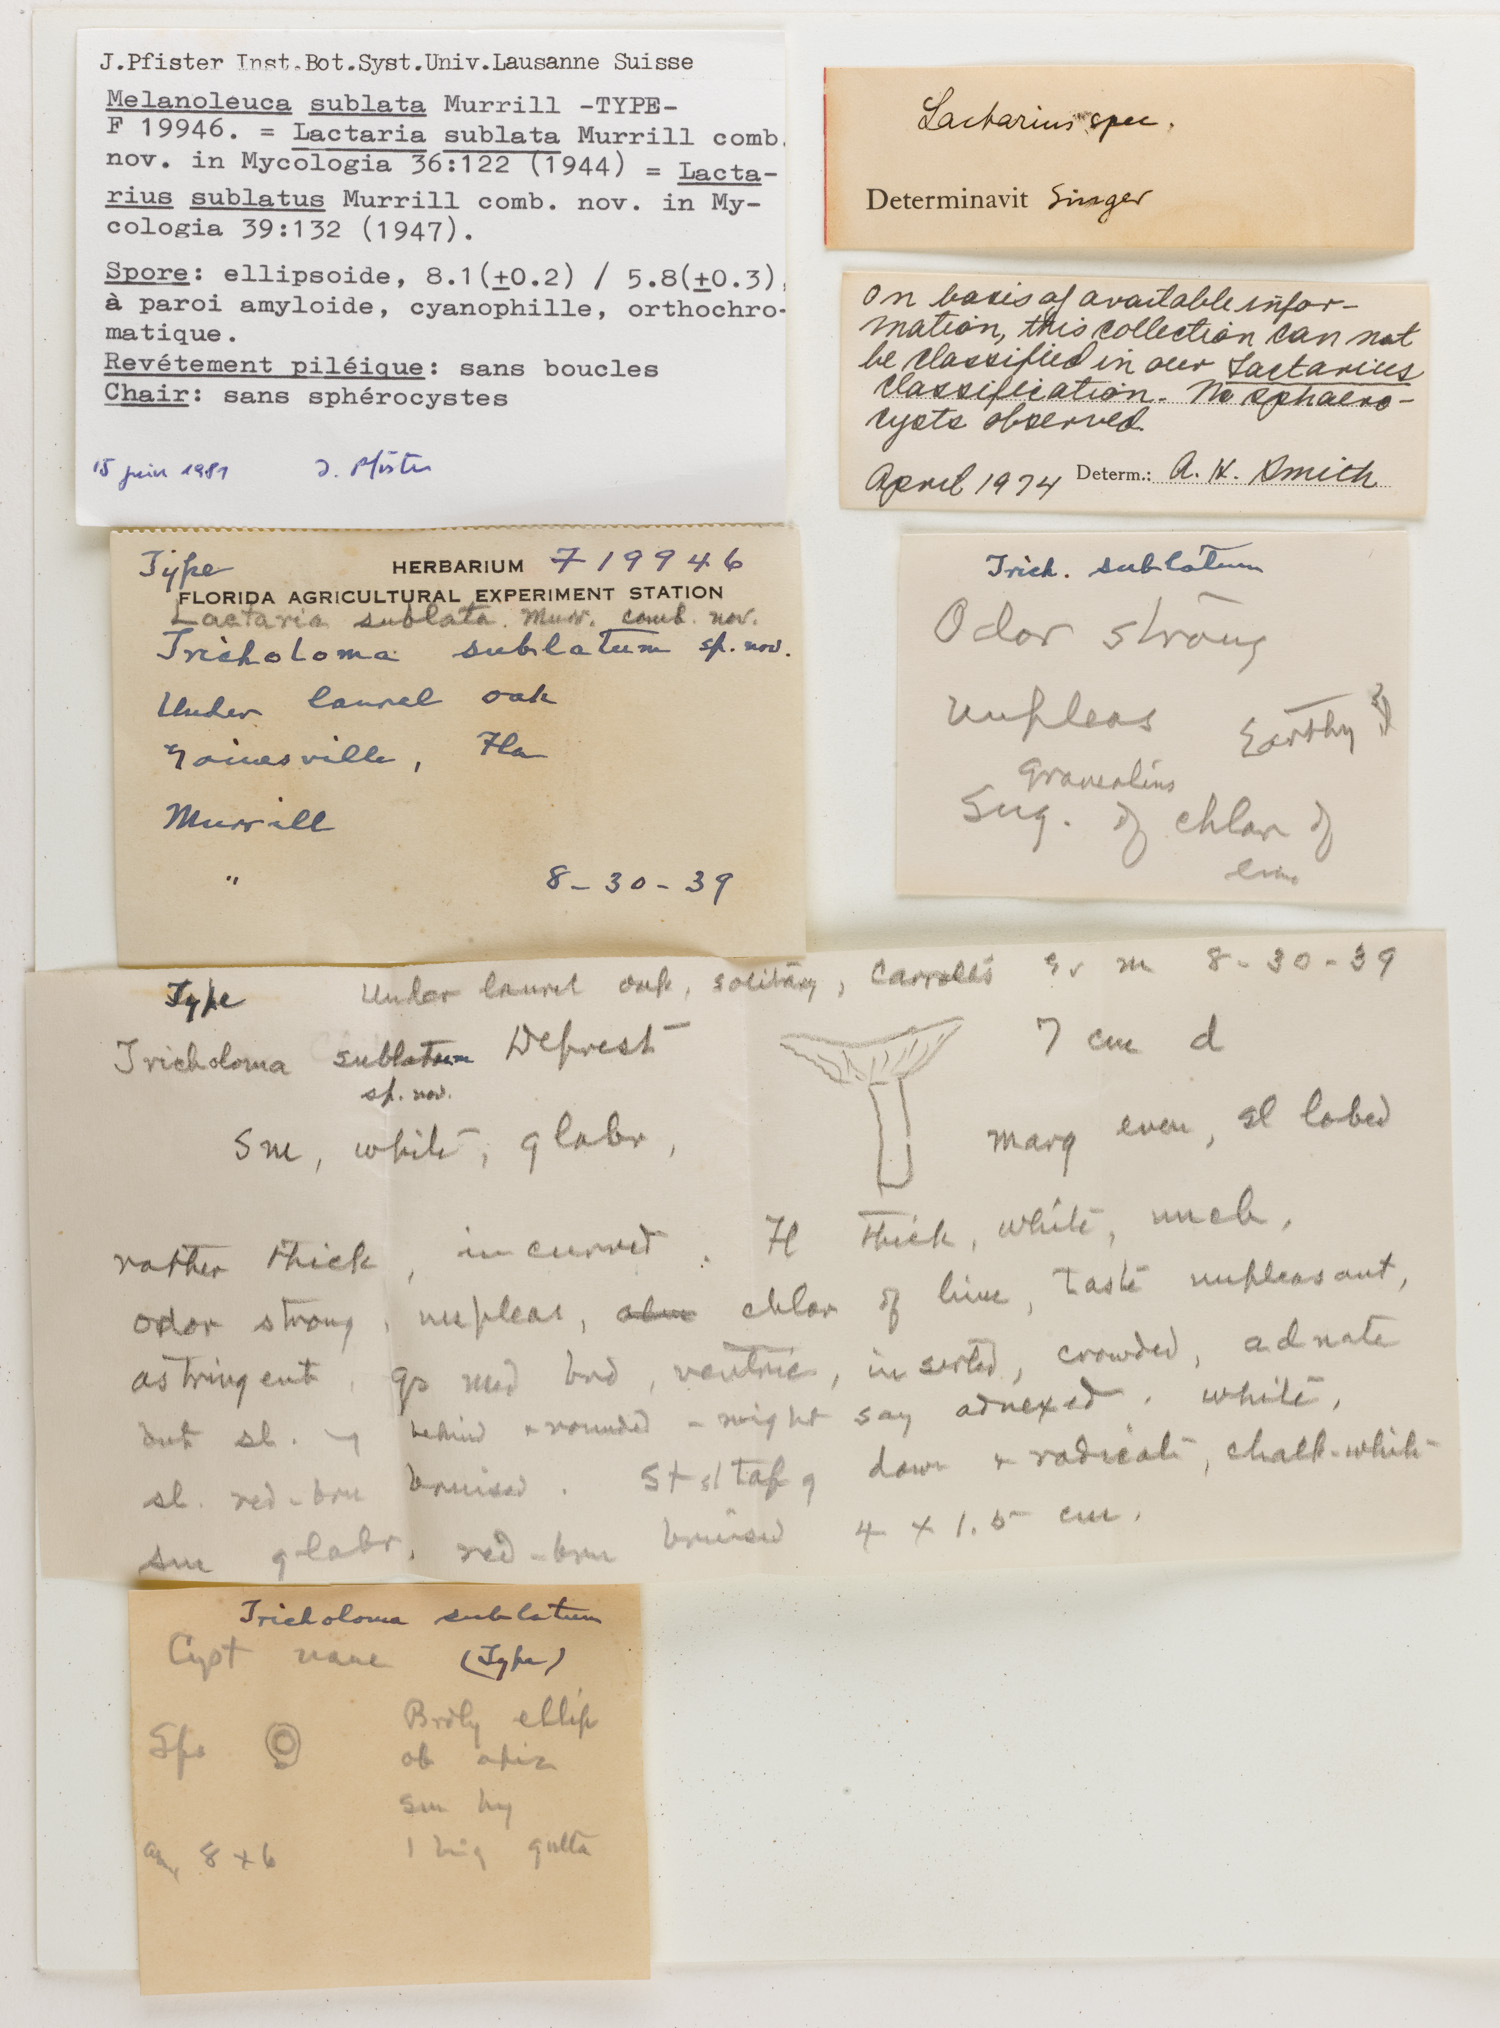 J.Pfister Inst.Bot.Syst.Univ.Lausanne Suisse
Melanoleuca sublata Murrill -TYPE-
F 19946. = Lactaria sublata Murrill comb.
nov. in Mycologia 36:122 (1944) = Lacta-
rius sublatus Murrill comb. nov. in My-
cologia 39:132 (1947).
Spore: ellipsoide, 8.1(±0.2) / 5.8(±0.3),
à paroi amyloide, cyanophille, orthochro-
matique.
Revétement piléique: sans boucles
Chair: sans sphérocystes
15 juin 1981 J. Pfister
Lactarius spec.
Determinavit Singer
On basis of available infor-
mation, this collection can not
be classified in our Lactarius
classification. No sphaero-
cysts observed.
April 1974 Determ.: A. H. Smith
Type HERBARIUM F19946
FLORIDA AGRICULTURAL EXPERIMENT STATION
Lactaria sublata Murr. comb. nov.
Tricholoma sublatum sp. nov.
Under laurel oak
Gainesville, Fla
Murrill
" 8-30-39
Trich. sublatum
Odor strong
unpleas Earthy
Graveolins
Sug. of chlor of
lim
Type Under laurel oak, solitary, Carroll's 8-30-39
Tricholoma sublatum Deprest 7 cm d
sp. nov.
Sm, white, glabr, marg even, sl lobed
rather thick, incurved. Fl thick, white, unch,
odor strong, unpleas, chlor of lime, taste unpleasant,
astringent, gs med brd, ventric, inserted, crowded, adnate
but sl. behind + rounded - might say adnexed. white,
sl. red-brn bruised. St sl tap g down + radicate, chalk-white
sm glabr, red-brn bruised 4 x 1.5 cm.
Tricholoma sublatum
Cyst none (Type)
Brdly ellip
Spo ob apic
sm hy
8 x 6 1 big gutta